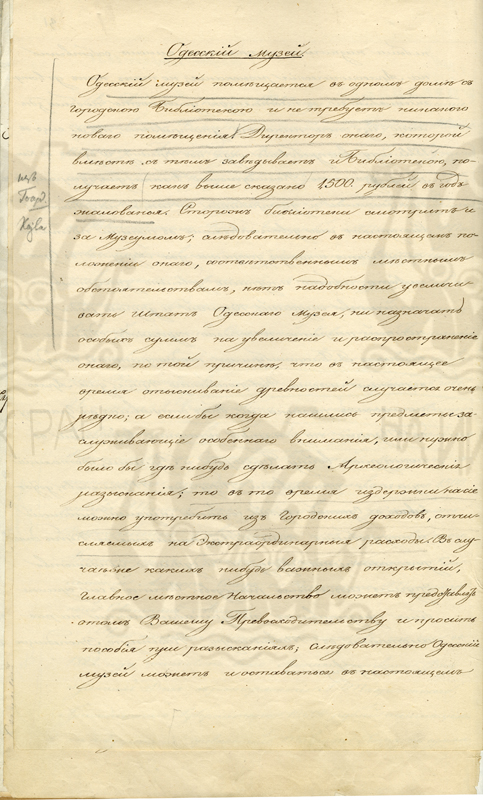 Одесскій музей.
Одесскій музей помѣщается въ одномъ домѣ съ
Городскою Библіотекою и не требуетъ никакого
новаго помѣщенія. Директоръ онаго, который
вмѣстѣ съ тѣмъ завѣдываетъ и Библіотекою, по-
лучаетъ какъ выше сказано 1500 рублей въ годъ
жалованья. Сторожъ библіотеки смотритъ и
за Музеумомъ; слѣдовательно въ настоящемъ по-
ложеніи онаго, соотвѣтственнымъ мѣстнымъ
обстоятельствамъ, нѣтъ надобности увеличи-
вать Штатъ Одесскаго Музея, ни назначать
особыхъ суммъ на увеличеніе и распространеніе
онаго, по той причинѣ, что въ настоящее
время отыскиваніе древностей случается очень
рѣдко; а если бы когда нашлись предметы за-
служивающіе особеннаго вниманія, или нужно
было бы гдѣ нибудь сдѣлать Археологическія
разысканія; то въ то время издержки на сіе
можно употребить изъ Городскихъ доходовъ, отчи-
сляемыхъ на Экстраординарные расходы. Въ слу-
чаѣ же какихъ нибудь важныхъ открытій,
Главное мѣстное Начальство можетъ представить
о томъ Вашему Превосходительству и просить
пособія при разысканіяхъ; слѣдовательно Одесскій
музей можетъ и оставаться въ настоящемъ
изъ
Город.